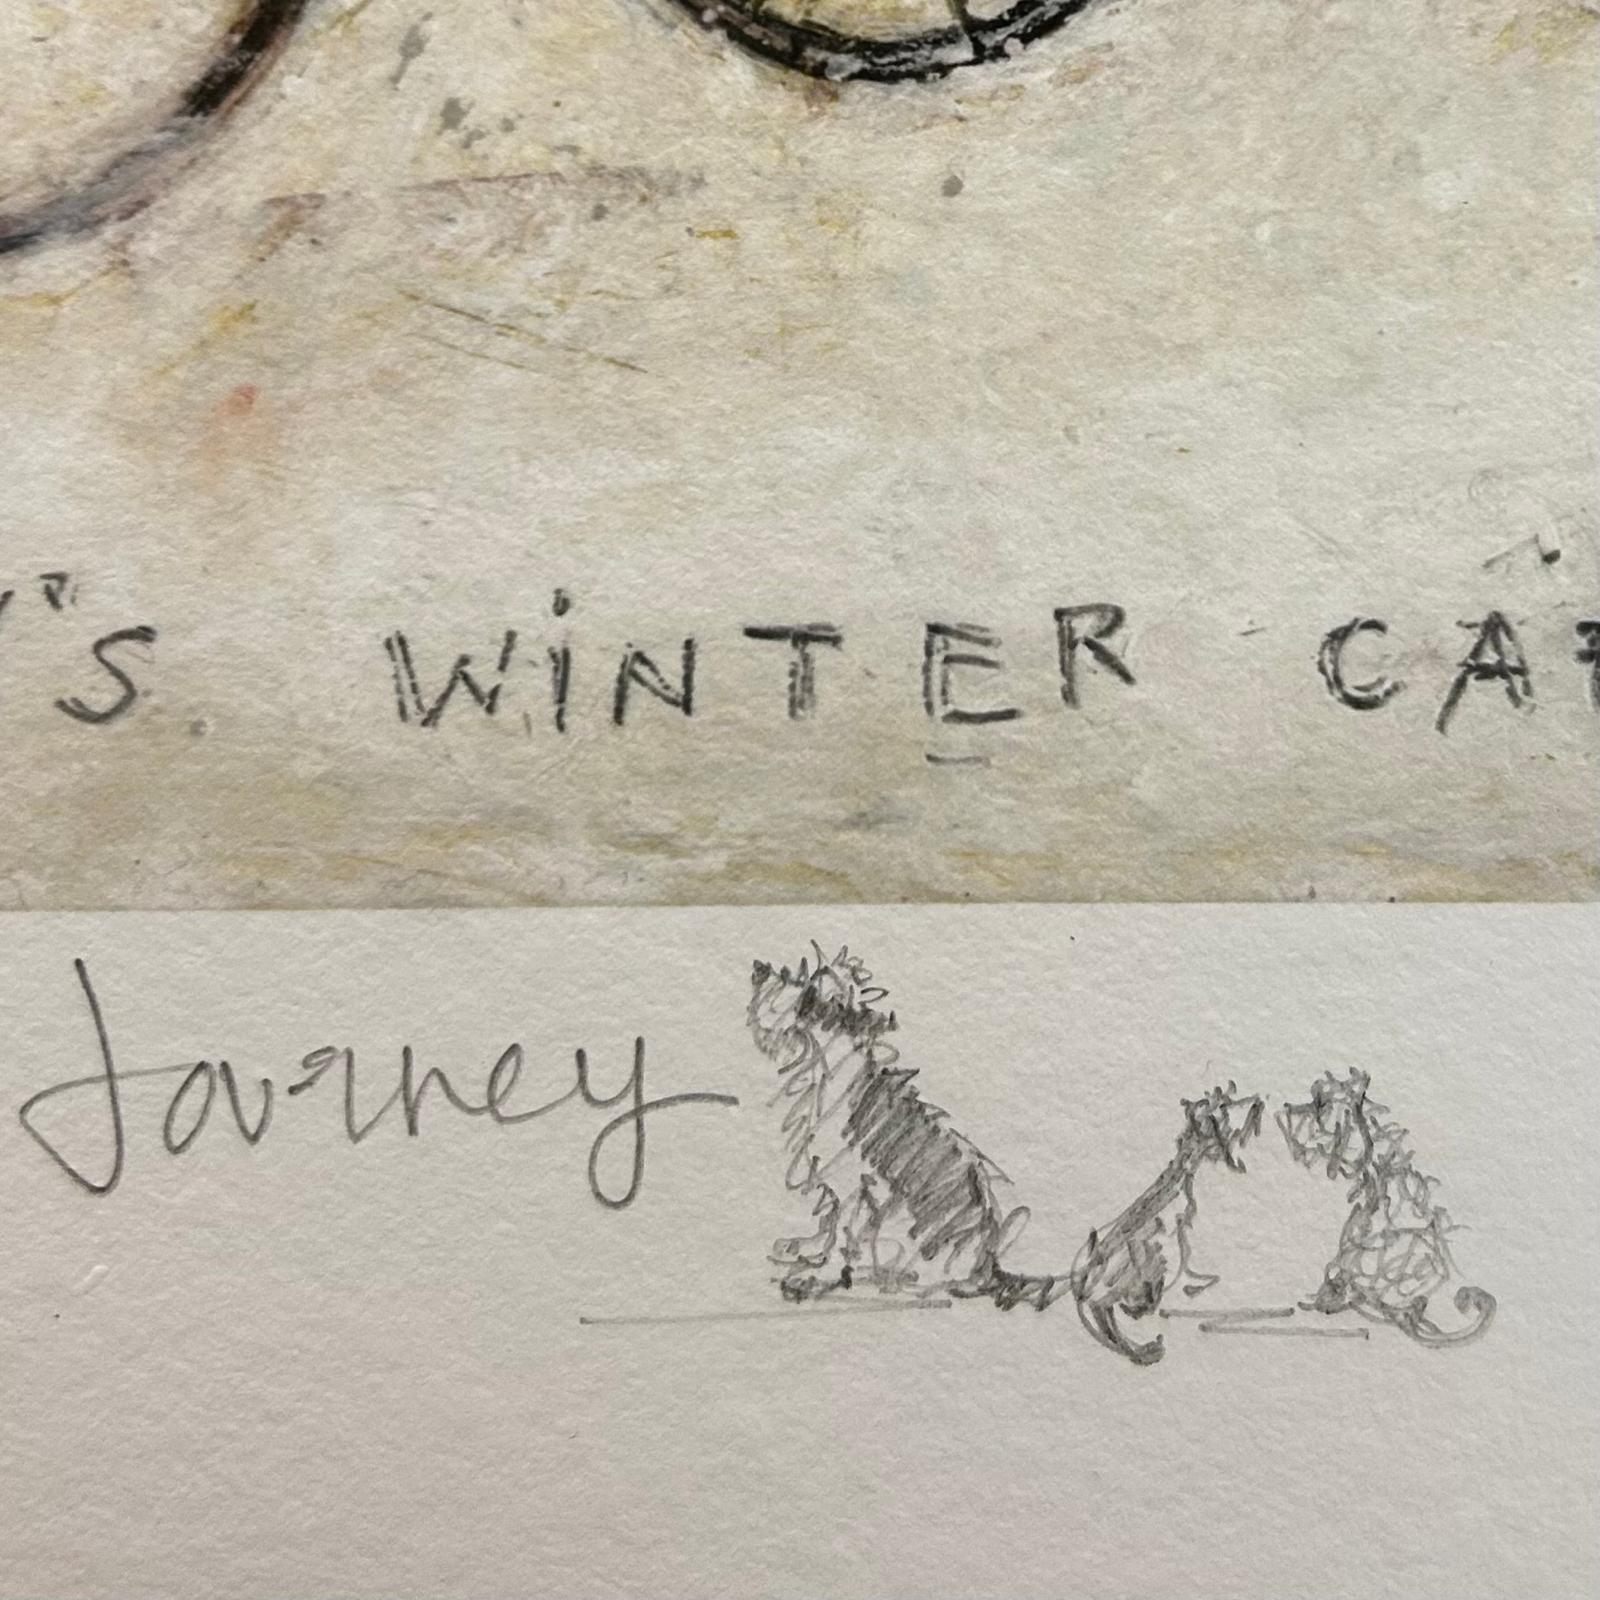 "S WiNTER CA
Journey